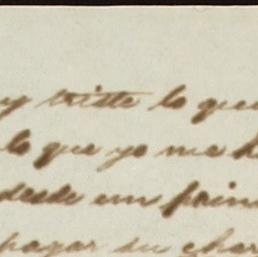 y triste lo que
lo que yo me h
desde un prin
pagar su char